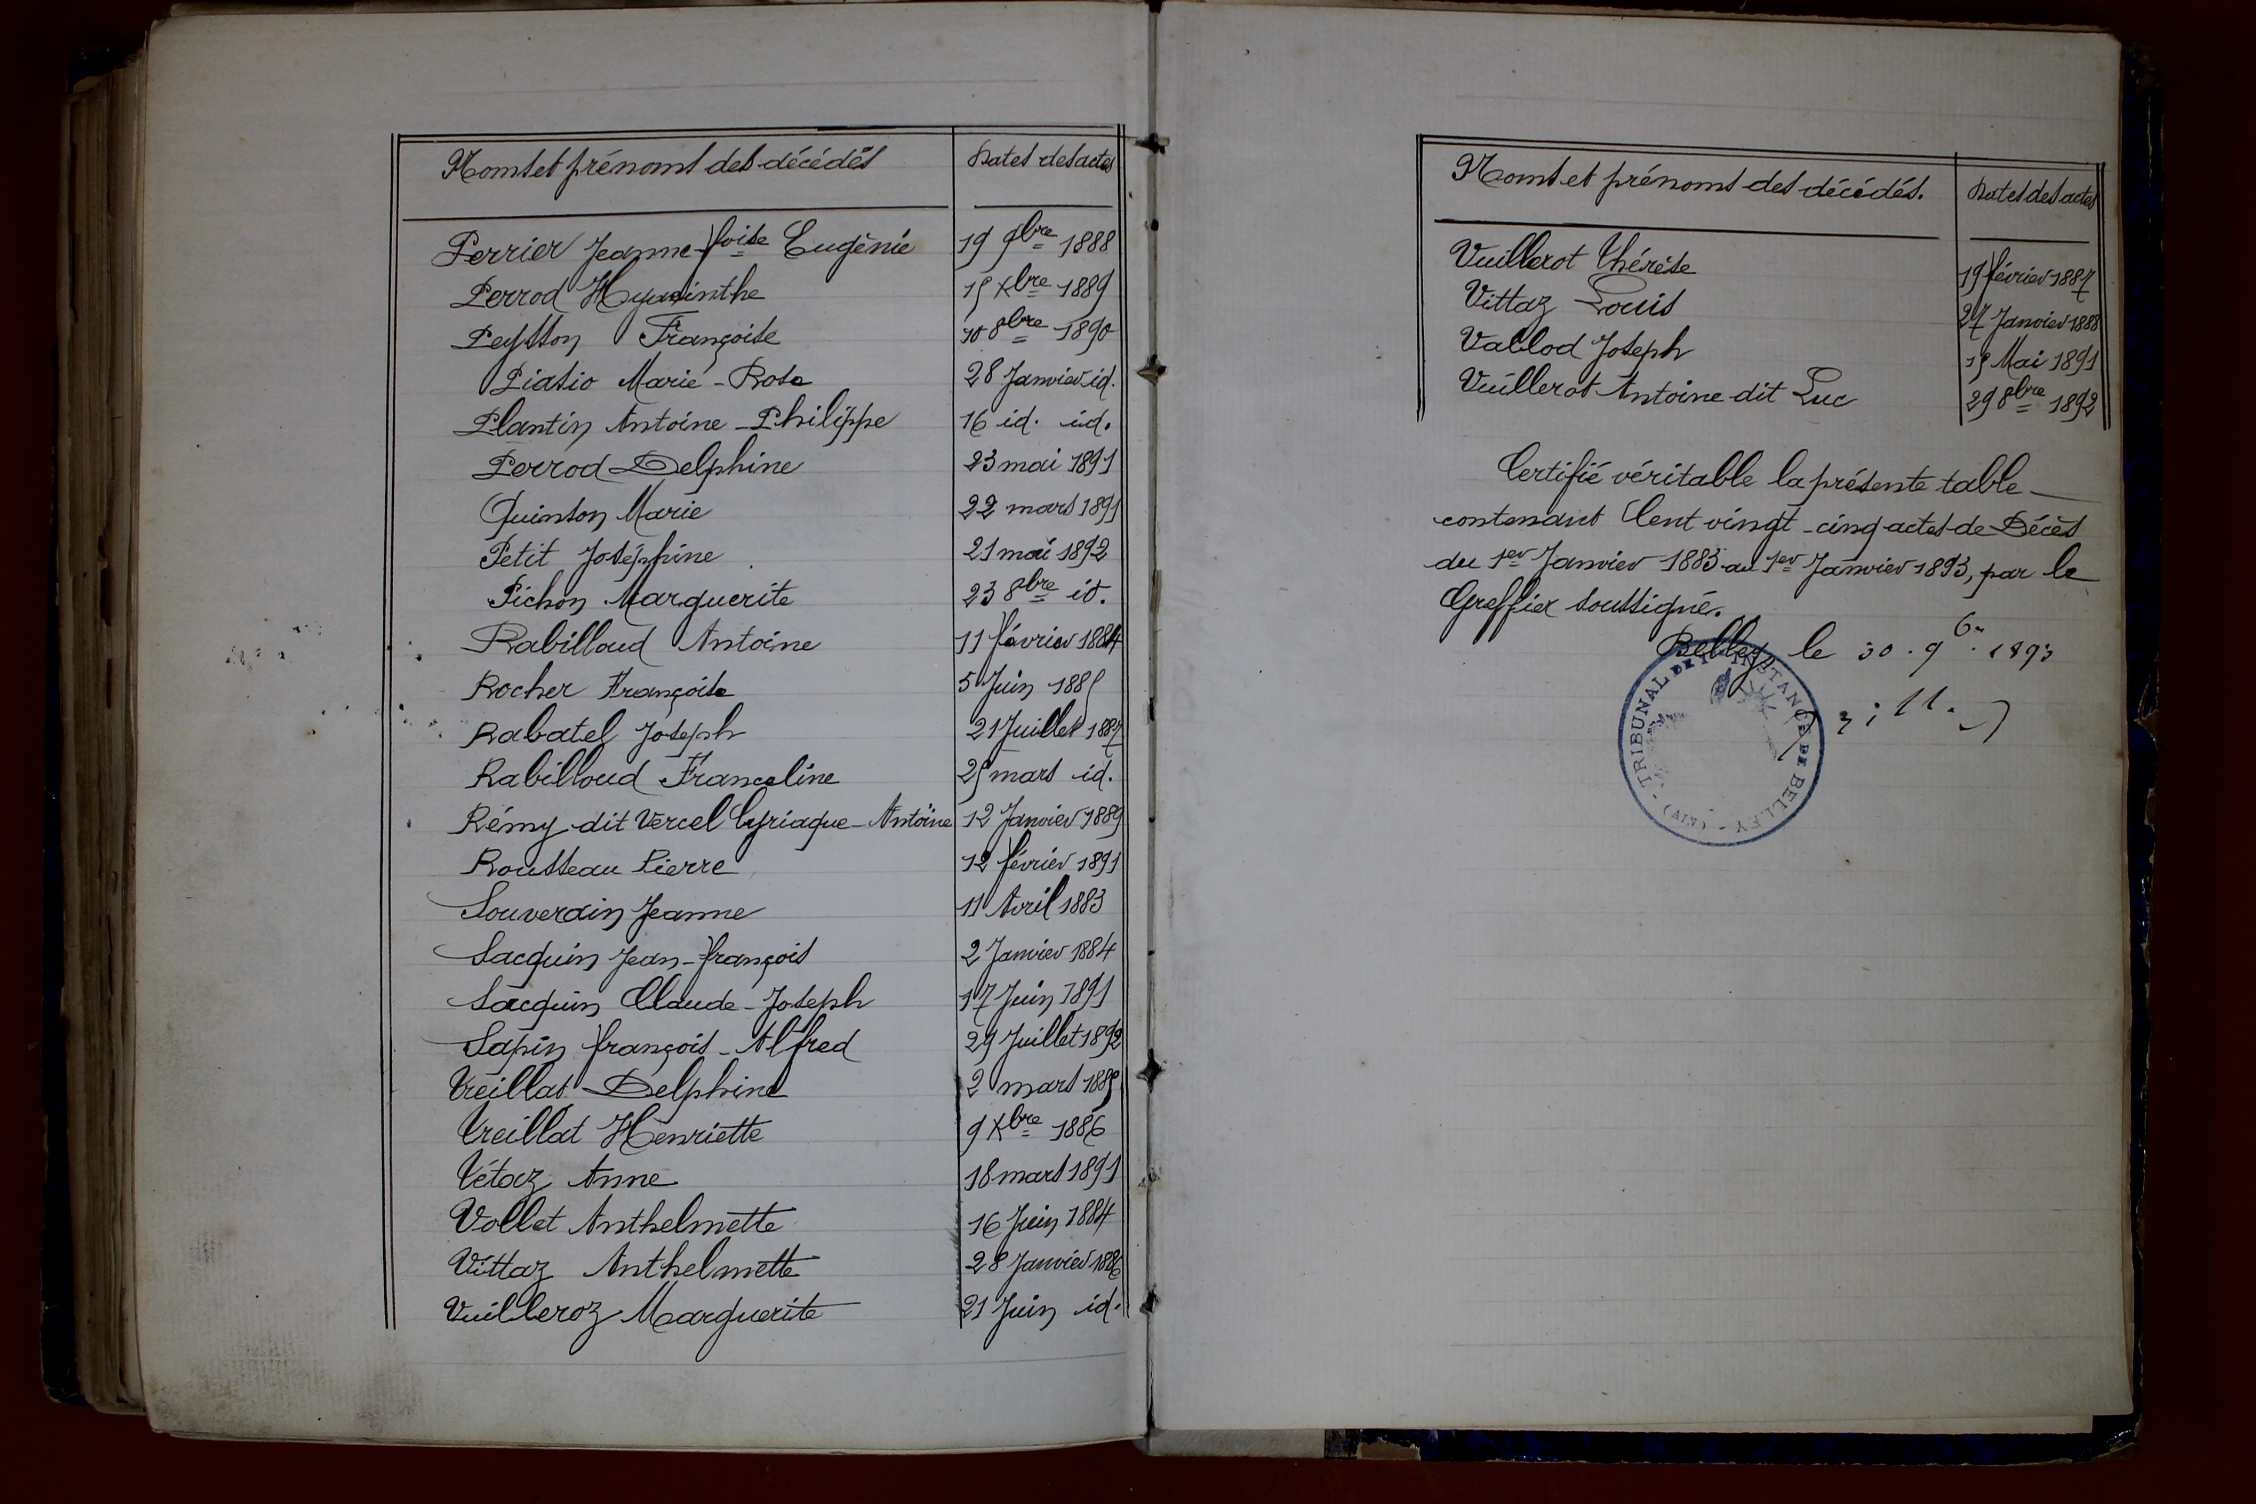 Noms et prénoms des décédés Dates des actes
Perrier Jeanne-foise Eugénie 19 9bre 1888
Perrod Hyacinthe 15 Xbre 1889
Peysson Françoise 10 8bre 1890
Piasio Marie-Rose 28 Janvier id.
Plantin Antoine-Philippe 16 id. id.
Perrod Delphine 23 mai 1891
Quinson Marie 22 mars 1891
Petit Joséphine 21 mai 1892
Pichon Marguerite 23 8bre id.
Rabilloud Antoine 11 février 1884
Rocher Françoise 5 Juin 1885
Rabatel Joseph 21 Juillet 1887
Rabilloud Franceline 25 mars id.
Rémy dit Vercel Cyriaque-Antoine 12 Janvier 1889
Rousseau Pierre 12 février 1891
Souverain Jeanne 11 Avril 1883
Sacquin Jean-françois 2 Janvier 1884
Sacquin Claude-Joseph 17 Juin 1891
Sapin françois-Alfred 29 Juillet 1892
Treillat Delphine 2 mars 1885
Treillat Henriette 9 Xbre 1886
Vétaz Anne 18 mars 1891
Vollet Anthelmette 16 Juin 1884
Vittaz Anthelmette 28 Janvier 1886
Vuilleroz Marguerite 21 Juin id.
Noms et prénoms des décédés. Dates des actes
Vuillerot Thérèse 19 février 1887
Vittaz Louis 27 Janvier 1888
Vallod Joseph 15 Mai 1891
Vuillerot Antoine dit Luc 29 8bre 1892
Certifié véritable la présente table
contenant Cent vingt-cinq actes de Décès
du 1er Janvier 1883 au 1er Janvier 1893, par le
Greffier soussigné.
Belley le 30. 9b. 1893
TRIBUNAL DE 1re INSTANCE DE BELLEY - (AIN) -